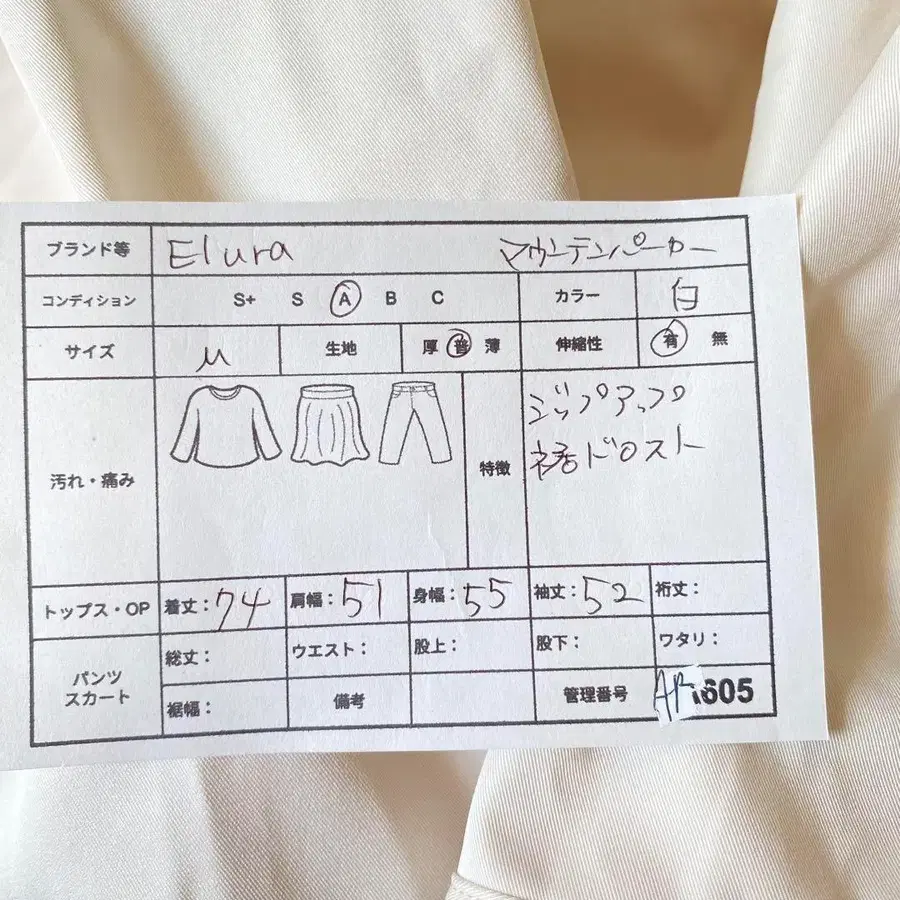 ブランド等 Elura マウンテンパーカー
コンディション S+ S A B C カラー 白
サイズ M 生地 厚 普 薄 伸縮性 有 無
汚れ・痛み 特徴 ジップアップ
裾ドロスト
トップス・OP 着丈：74 肩幅：51 身幅：55 袖丈：52 裄丈：
パンツ スカート 総丈： ウエスト： 股上： 股下： ワタリ：
裾幅： 備考 管理番号 605